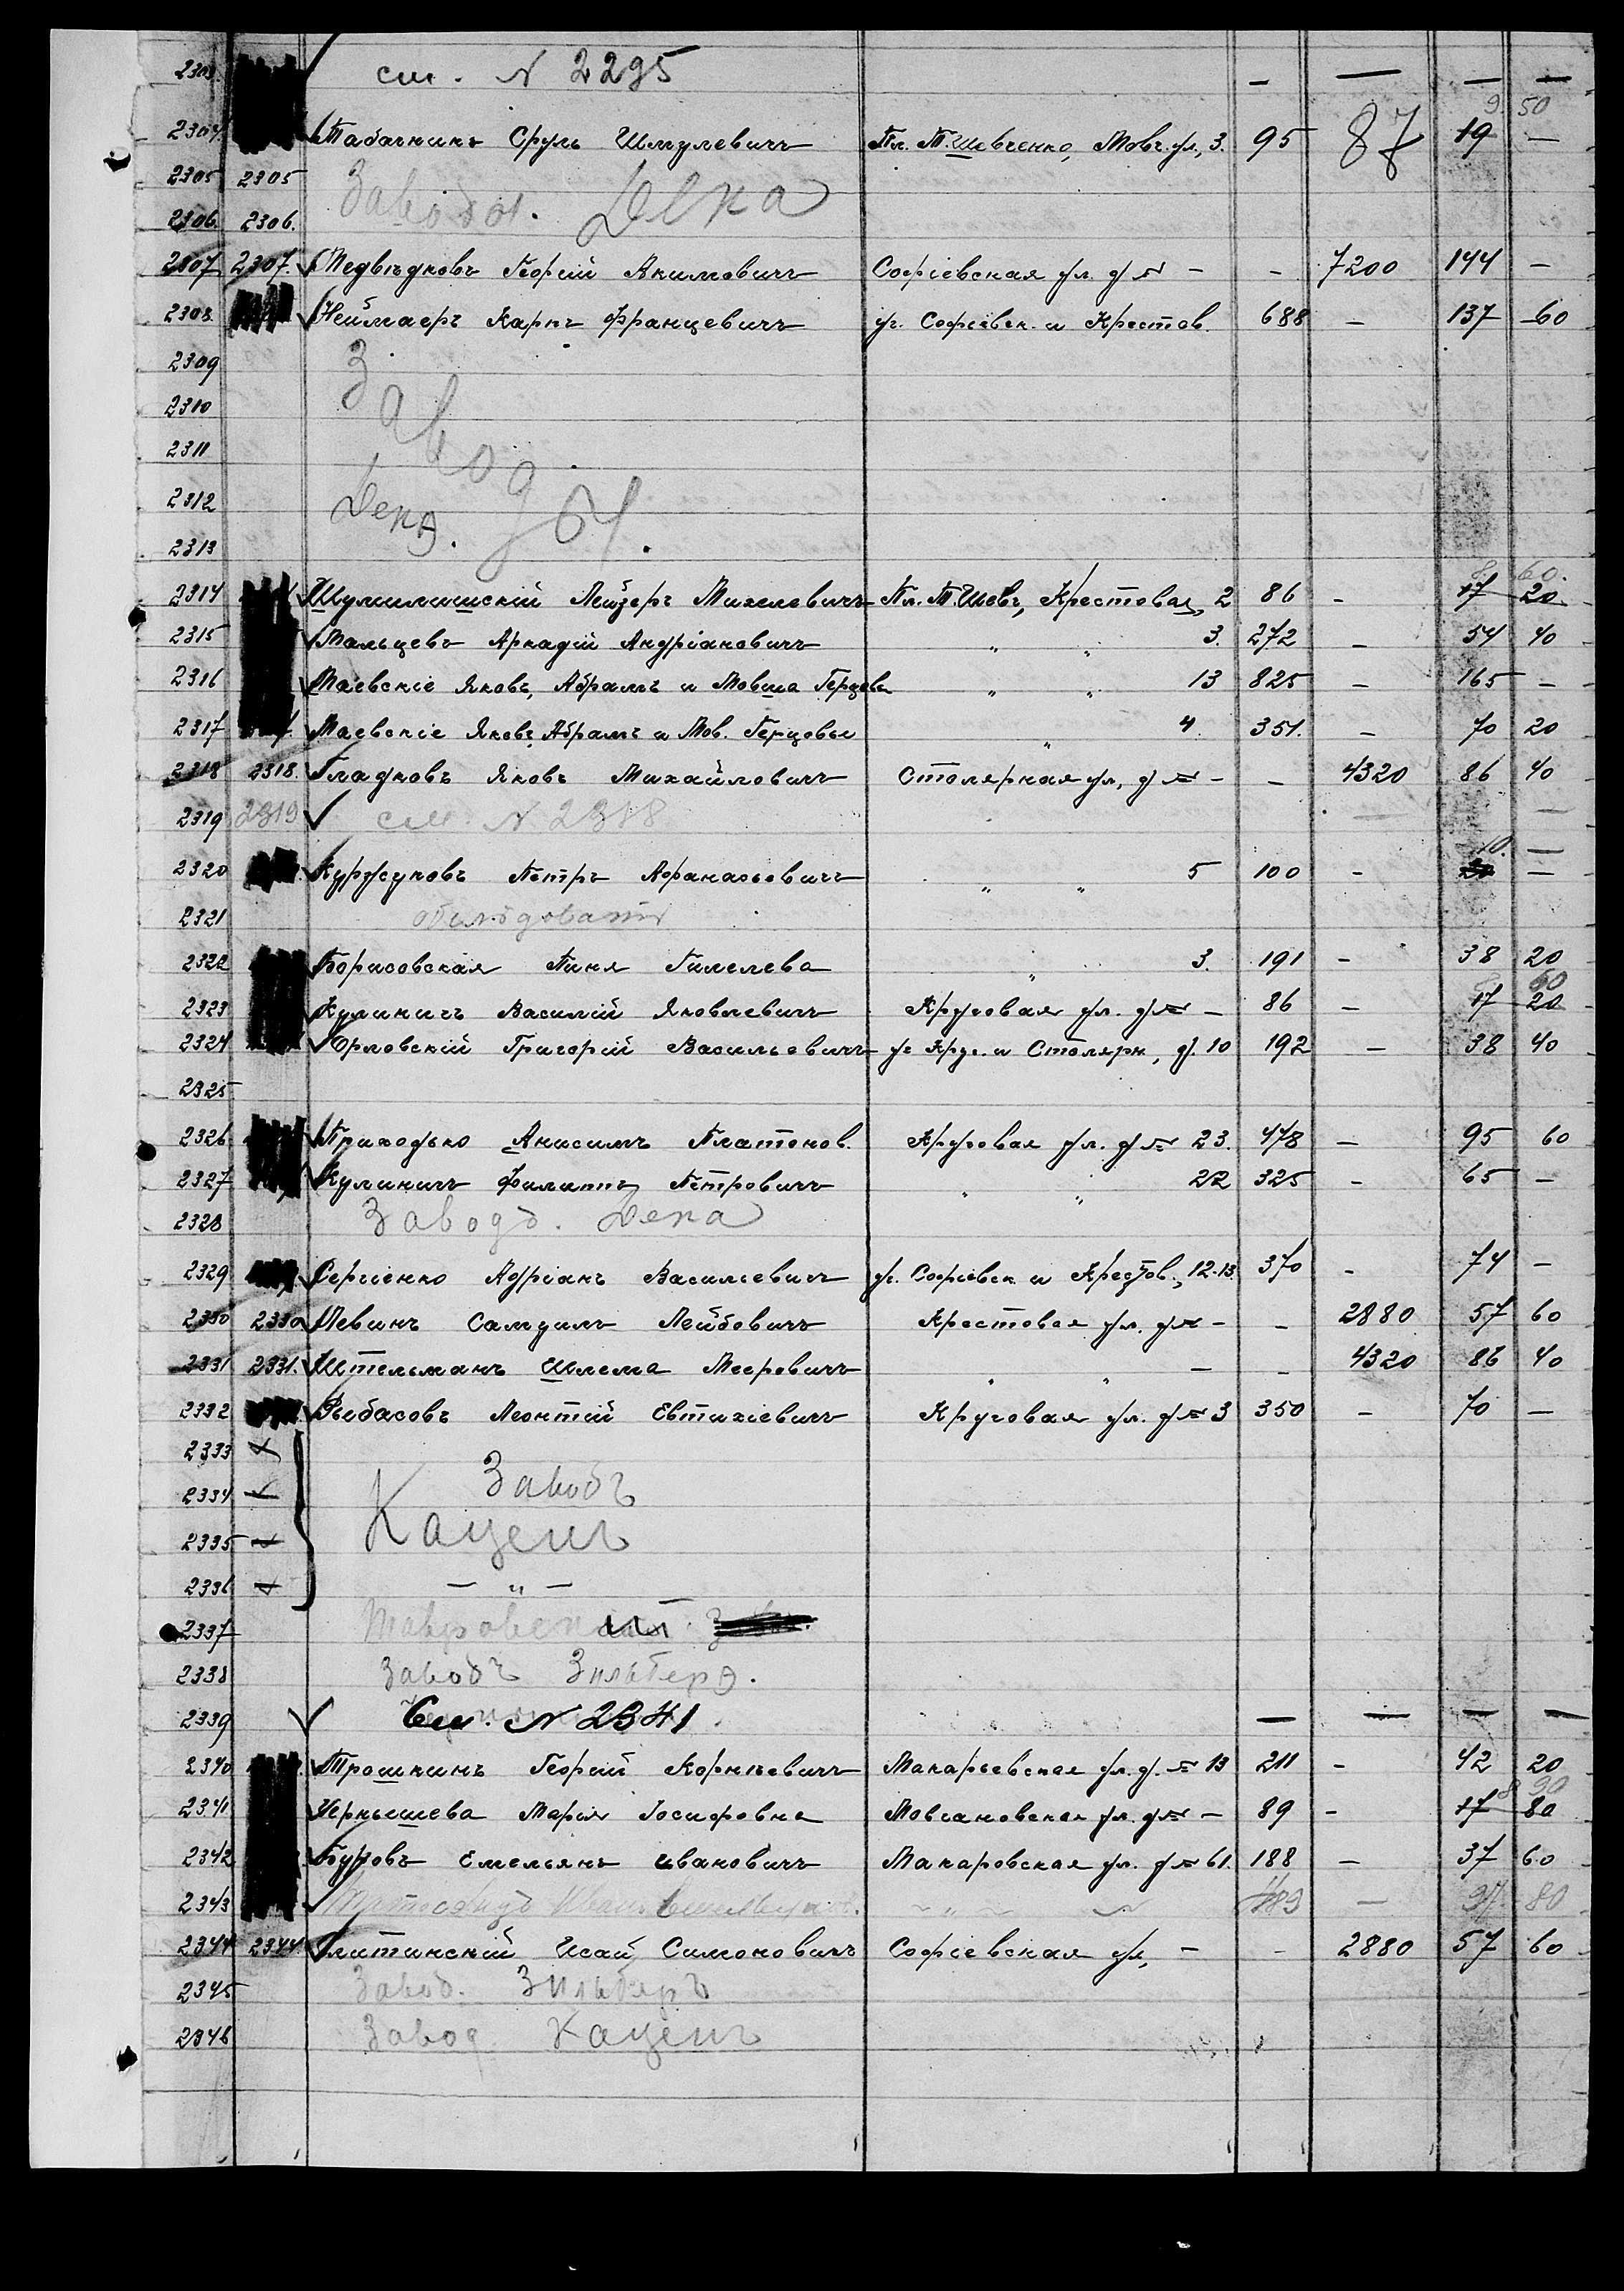 2303 см. N 2295 — — — —
9 50
2304 Табачникъ Сруль Шмулевичъ Пл. Т. Шевченко, Мовч. ул., 3. 95 87 19 —
2305 2305 Заводы. Дека
2306. 2306.
2307 2307. Медвѣдковъ Георгій Акимовичъ Софіевская ул. д № — — 7200 144 —
2308 Неймаеръ Карлъ Францевичъ уг. Софіевск. и Крестов. 688 — 137 60
2309 Заводы
2310
2311
2312 Дека.
2313
8 60.
2314 Шумилишскій Лейзеръ Михелевичъ Пл. Т. Шевч, Крестовая, 2 86 — 17 20
2315 Мальцевъ Аркадій Андріановичъ „ „ 3. 272 — 54 40
2316 Маевскіе Яковъ, Абрамъ и Мовша Герцовы „ „ 13 825 — 165 —
2317 Маевскіе Яковъ, Абрамъ и Мов. Герцовы „ 4. 351. — 70 20
2318 2318. Гладковъ Яковъ Михайловичъ Столярная ул, д № — — 4320 86 40
2319 2319 см. N 2388 — —
10. —
2320 Курдсуковъ Петръ Афанасьевичъ „ „ 5 100 — 20 —
2321 обслѣдовать
2322 Борисовская Пиня Гилелева „ 3. 191 — 38 20
60
2323 Кулиничъ Василій Яковлевичъ Круговая ул. д № — 86 — 17 20
2324 Орловскій Григорій Васильевичъ уг Круг. и Столярн, д. 10 192 — 38 40
2325
2326 Приходько Анисимъ Платонов. Круговая ул. д № 23. 478 — 95 60
2327 Кулиничъ Филиппъ Петровичъ „ „ 22 325 — 65 —
2328 Заводъ. Дека
2329 Сергіенко Адріанъ Васильевичъ уг. Софіевск и Крестов., 12-13 370 — 74 —
2330 2330 Левинъ Самуилъ Лейбовичъ Крестовая ул. д № — — 2880 57 60
2331 2331. Штельманъ Шлема Мееровичъ „ „ — — 4320 86 40
2332 Рыбасовъ Леонтій Евтихіевичъ Круговая ул. д № 3 350 — 70 —
2333
2334 Заводъ
2335 Каценъ
2336 — „ —
2337
2338 Заводъ Зильбера.
2339 См. N 2341 — — — —
2340 Трошкинъ Георгій Корнѣевичъ Макарьевская ул. д. № 13 211 — 42 20
8 90
2341 Чернышева Марія Іосифовна Мовчановская ул. д № — 89 — 17 80
2342 Буровъ Емельянъ Ивановичъ Макаровская ул. д № 61. 188 — 37 60
2343 „ 489 — 97 80
2344 2344 Глитинскій Исай Симоновичъ Софіевская ул, — — 2880 57 60
2345 Завод. Зильберъ
2346 Завод Каценъ